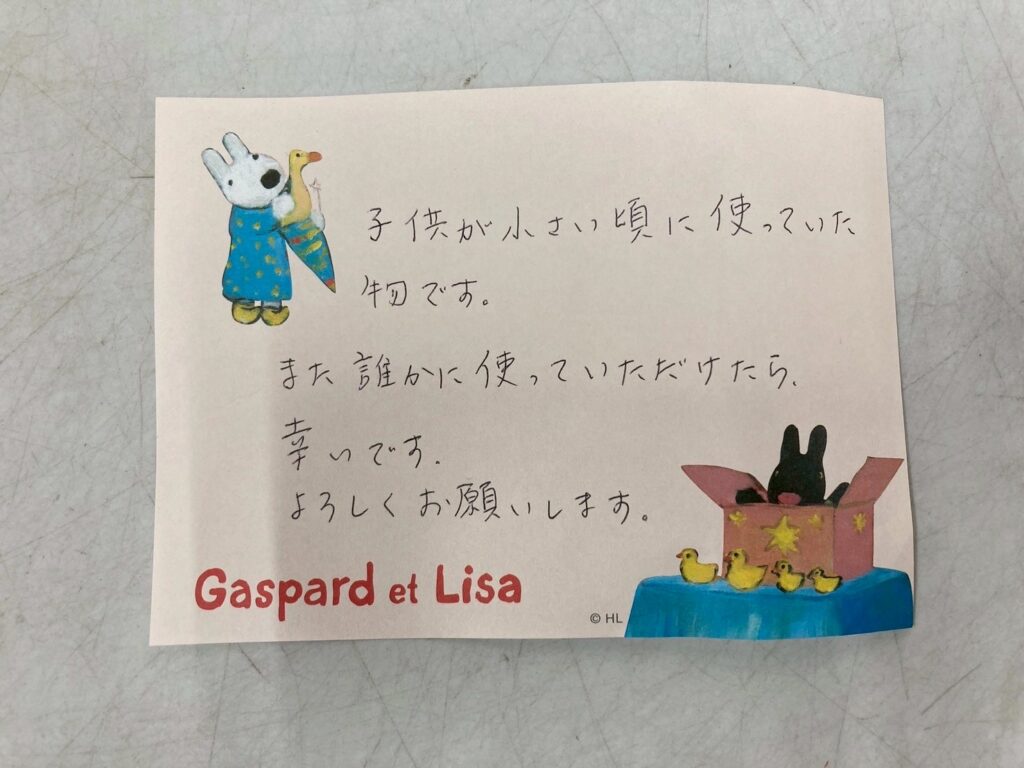 子供が小さい頃に使っていた
物です。
また誰かに使っていただけたら、
幸いです。
よろしくお願いします。
Gaspard et Lisa
© HL